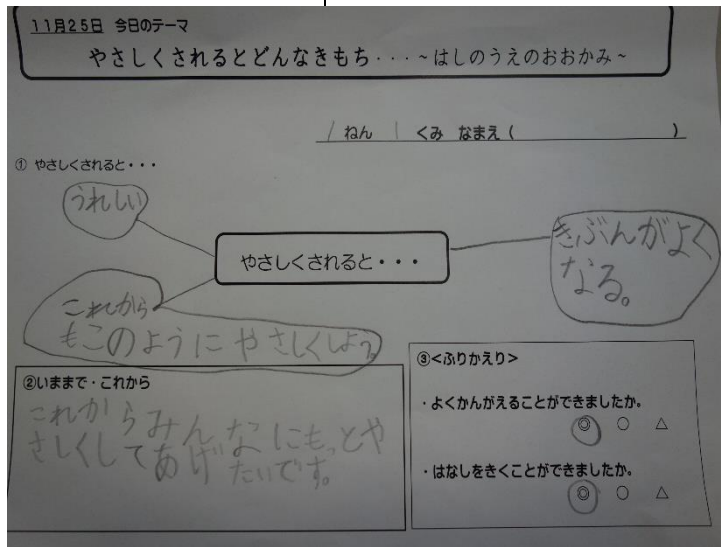 11月25日 今日のテーマ
やさしくされるとどんなきもち・・・~はしのうえのおおかみ~
1 ねん 1 くみ なまえ ( )
① やさしくされると・・・
うれしい
やさしくされると・・・
きぶんがよく
なる。
これから
もこのようにやさしくしよう。
②いままで・これから
これからみんなにもっとや
さしくしてあげたいです。
③<ふりかえり>
・よくかんがえることができましたか。
◎ ○ △
・はなしをきくことができましたか。
◎ ○ △